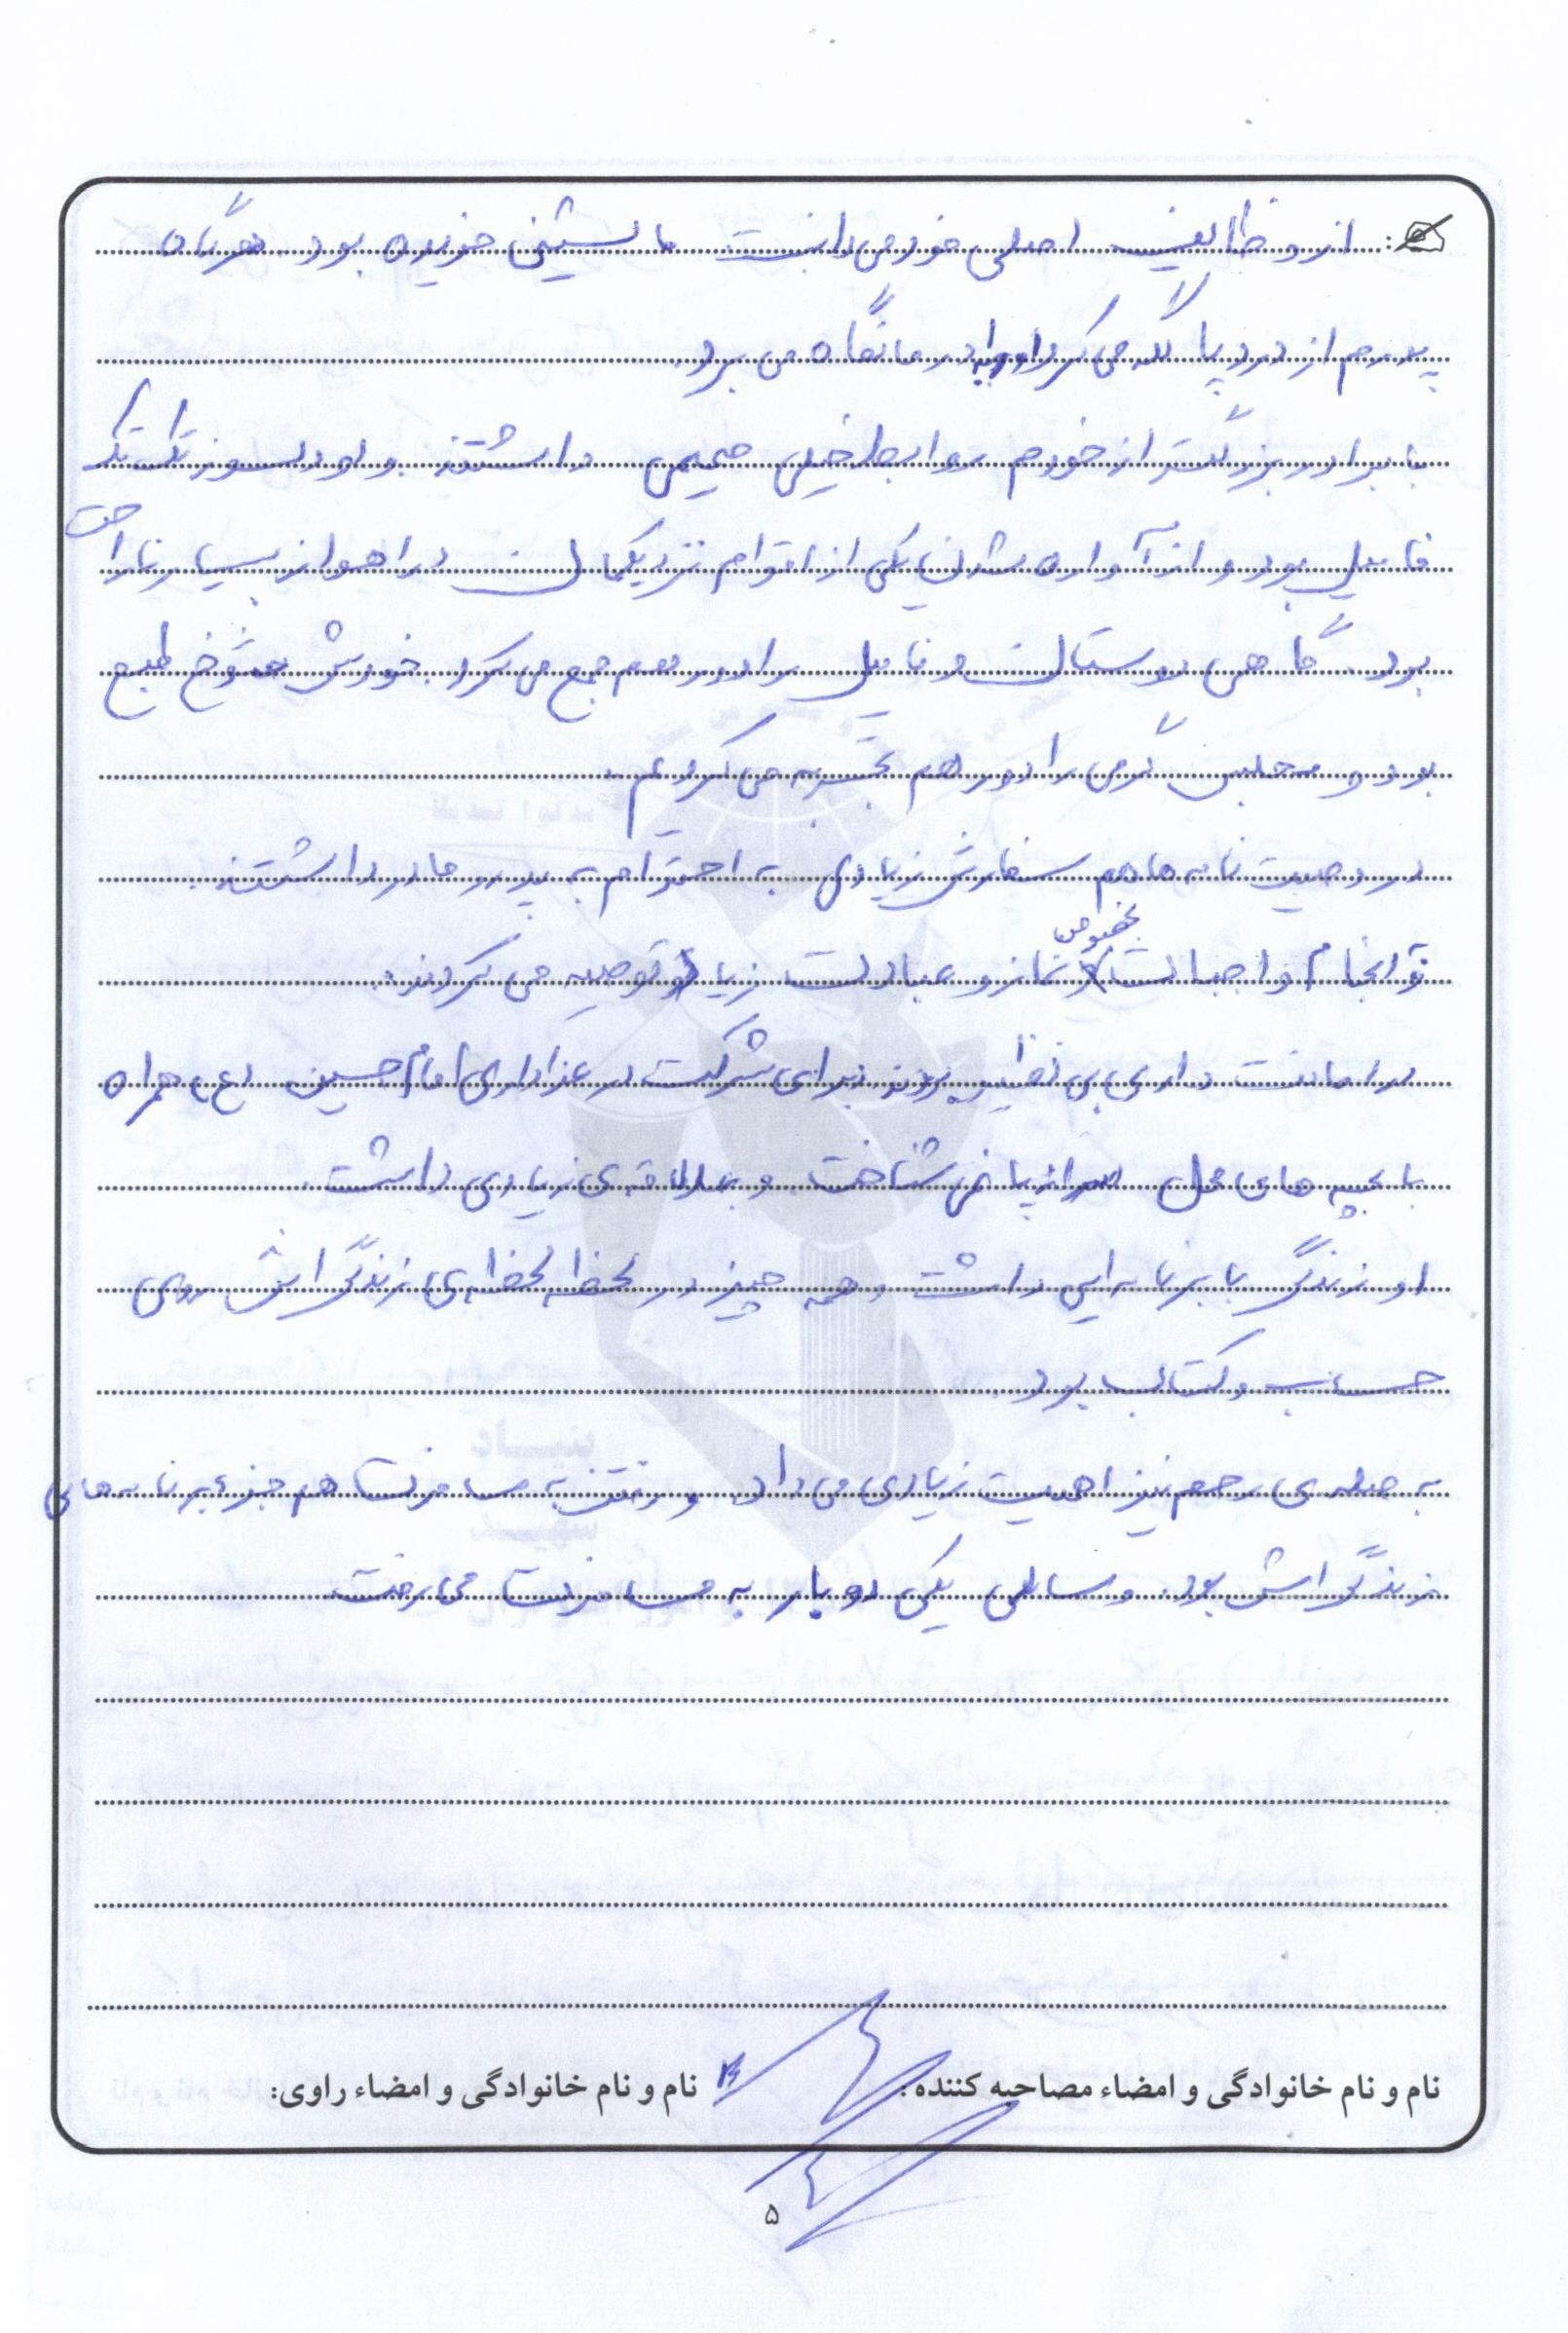 از وظایف اصلی خود می دانست ماشینی خریده بود. هرگاه
پدرم از درد پا گله می کرد او را به درمانگاه می برد.
با برادر بزرگتر از خودم روابط خیلی صمیمی داشتند و دلسوز تک تک
فامیل بود و از آواره شدن یکی از اقوام نزدیکمان در اهواز بسیار ناراحت
بود. گاهی دوستان و فامیل را دور هم جمع می کرد. خودش شوخ طبع
بود و مجلس گرمی را دور هم تجربه می کردیم.
در وصیت نامه ها هم سفارش زیادی به احترام به پدر و مادر داشتند.
انجام واجبات بخصوص نماز و عبادت زیاد توصیه می کردند.
در امانت داری بی نظیر بودند. برای شرکت در عزاداری امام حسین (ع) همراه
با بچه های محل سر از پا نمی شناخت. و علاقه ی زیادی داشت.
او زندگی با برنامه ایی داشت و همه چیز در لحظه لحظه ی زندگی اش روی
حساب و کتاب بود.
به صله ی رحم نیز اهمیت زیادی می داد. و رفتن به مسافرت هم جزء برنامه های
زندگی اش بود. و سالی یکی دو بار به مسافرت می رفت.
نام و نام خانوادگی و امضاء مصاحبه کننده: نام و نام خانوادگی و امضاء راوی:
۵